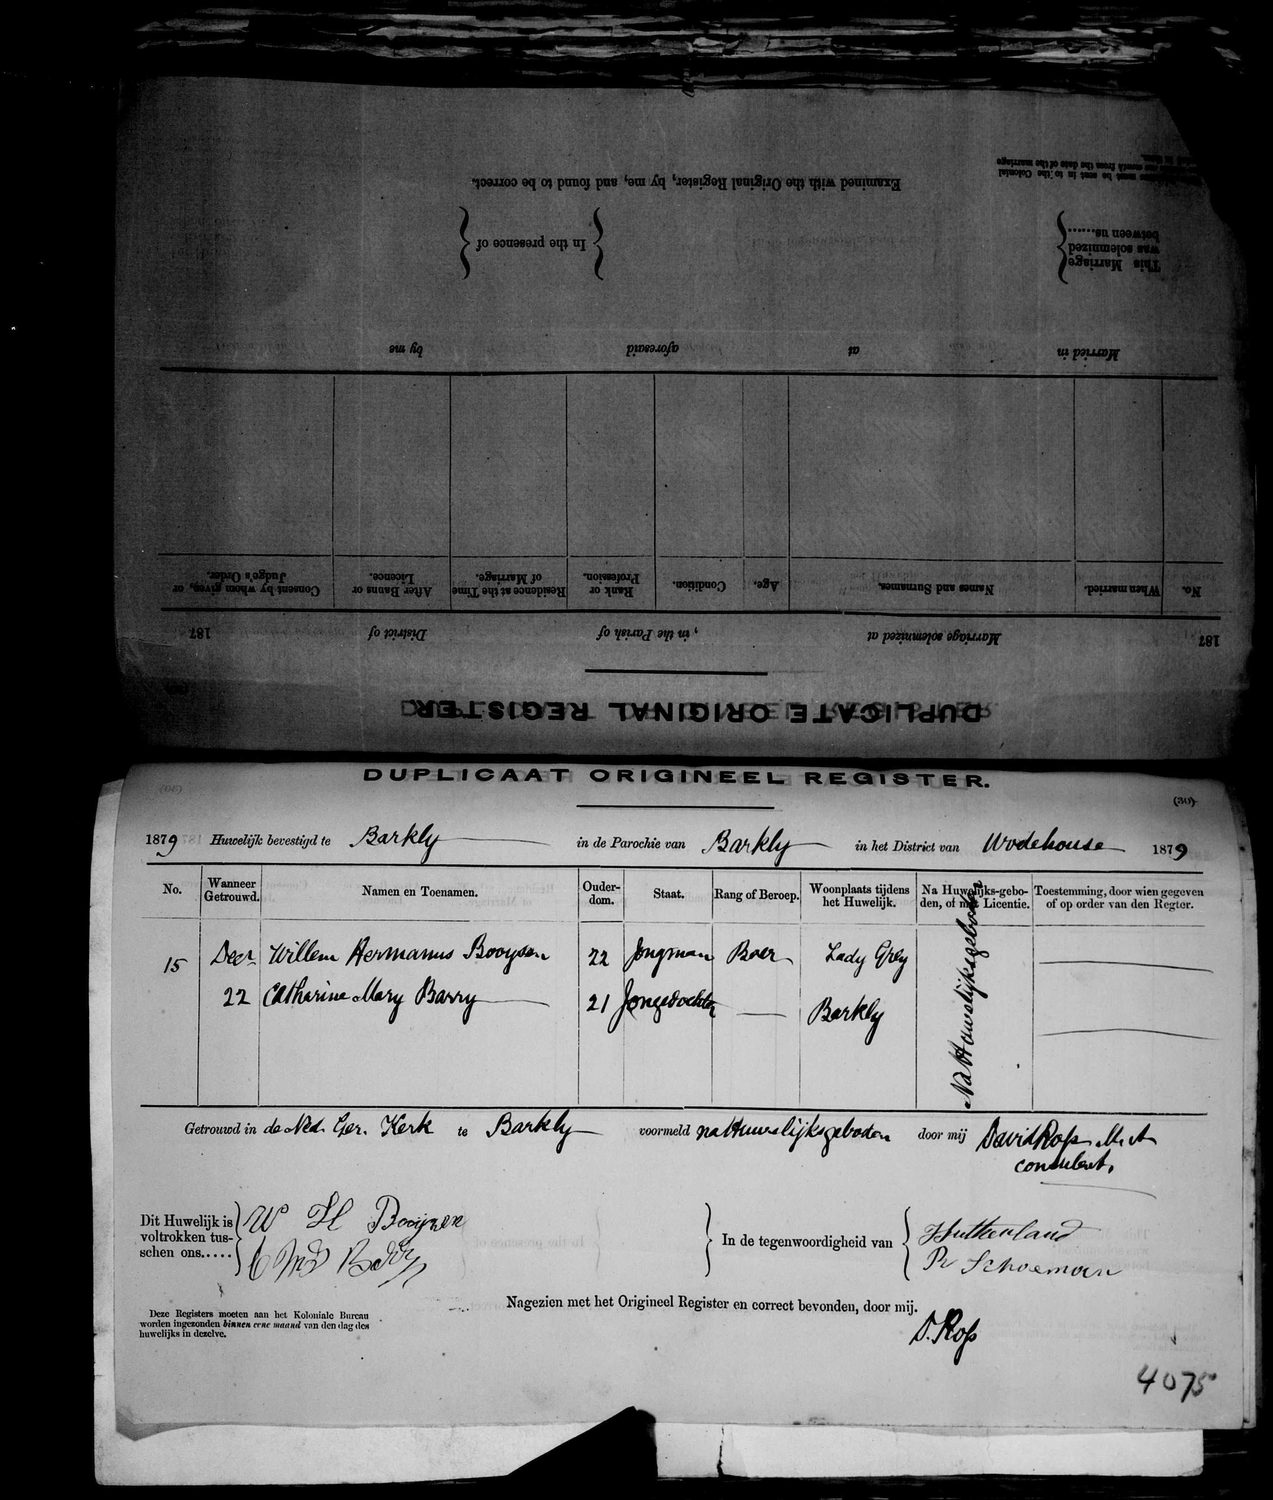 DUPLICATE ORIGINAL REGISTER
187
Marriage solemnized at , in the Parish of District of 187
No. When married. Names and Surnames. Age. Condition. Rank or Profession. Residence at the Time of Marriage. After Banns or Licence. Consent by whom given, or Judge's Order.
Married in at aforesaid by me
This Marriage was solemnized between us......
In the presence of
Examined with the Original Register, by me, and found to be correct.
must be sent in to the Colonial
month from the date of the marriage
DUPLICAAT ORIGINEEL REGISTER.
(30)
1879 Huwelijk bevestigd te Barkly in de Parochie van Barkly in het District van Wodehouse 1879
No. Wanneer Getrouwd. Namen en Toenamen. Ouderdom. Staat. Rang of Beroep. Woonplaats tijdens het Huwelijk. Na Huwelijks-geboden, of met Licentie. Toestemming, door wien gegeven of op order van den Regter.
15 Decr Willem Hermanus Booysen 22 Jongman Boer Lady Grey
22 Catharine Mary Barry 21 Jongedochter Barkly
Na Huwelijksgeboden
Getrouwd in de Ned. Ger. Kerk te Barkly voormeld na Huwelijksgeboden door mij David Ross M.A
consulent.
Dit Huwelijk is voltrokken tusschen ons.....
W H Booysen
In de tegenwoordigheid van
Sutherland
Schoeman
Nagezien met het Origineel Register en correct bevonden, door mij.
D. Ross
Deze Registers moeten aan het Koloniale Bureau
worden ingezonden binnen eene maand van den dag des
huwelijks in dezelve.
4075